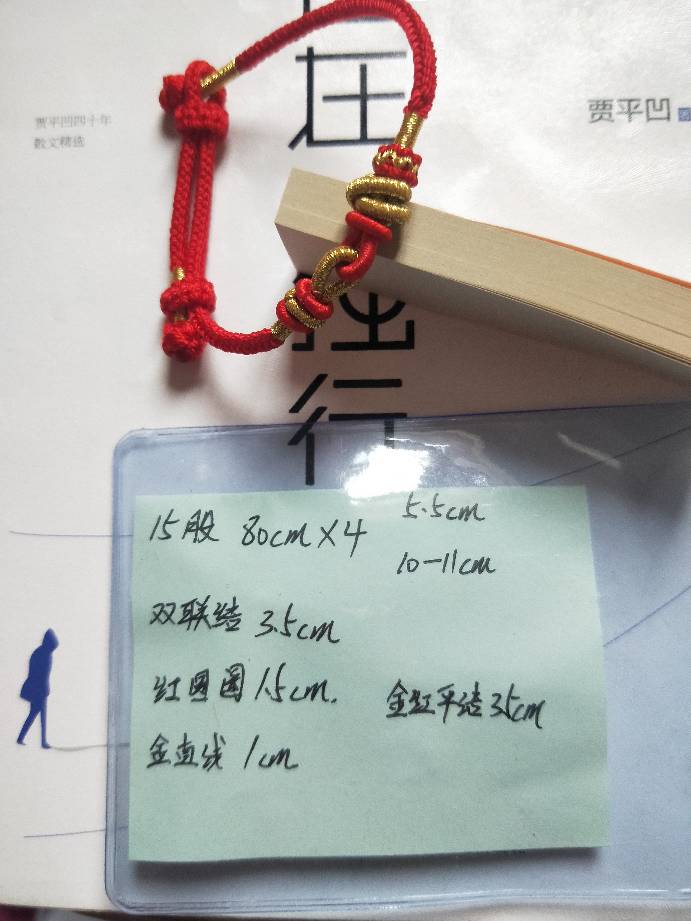 在
独行
贾平凹四十年
散文精选
贾平凹
15股 80cm×4 5.5cm
10-11cm
双联结 3.5cm
红圈圈 1.5cm.
金红平结 3.5cm
金直线 1cm